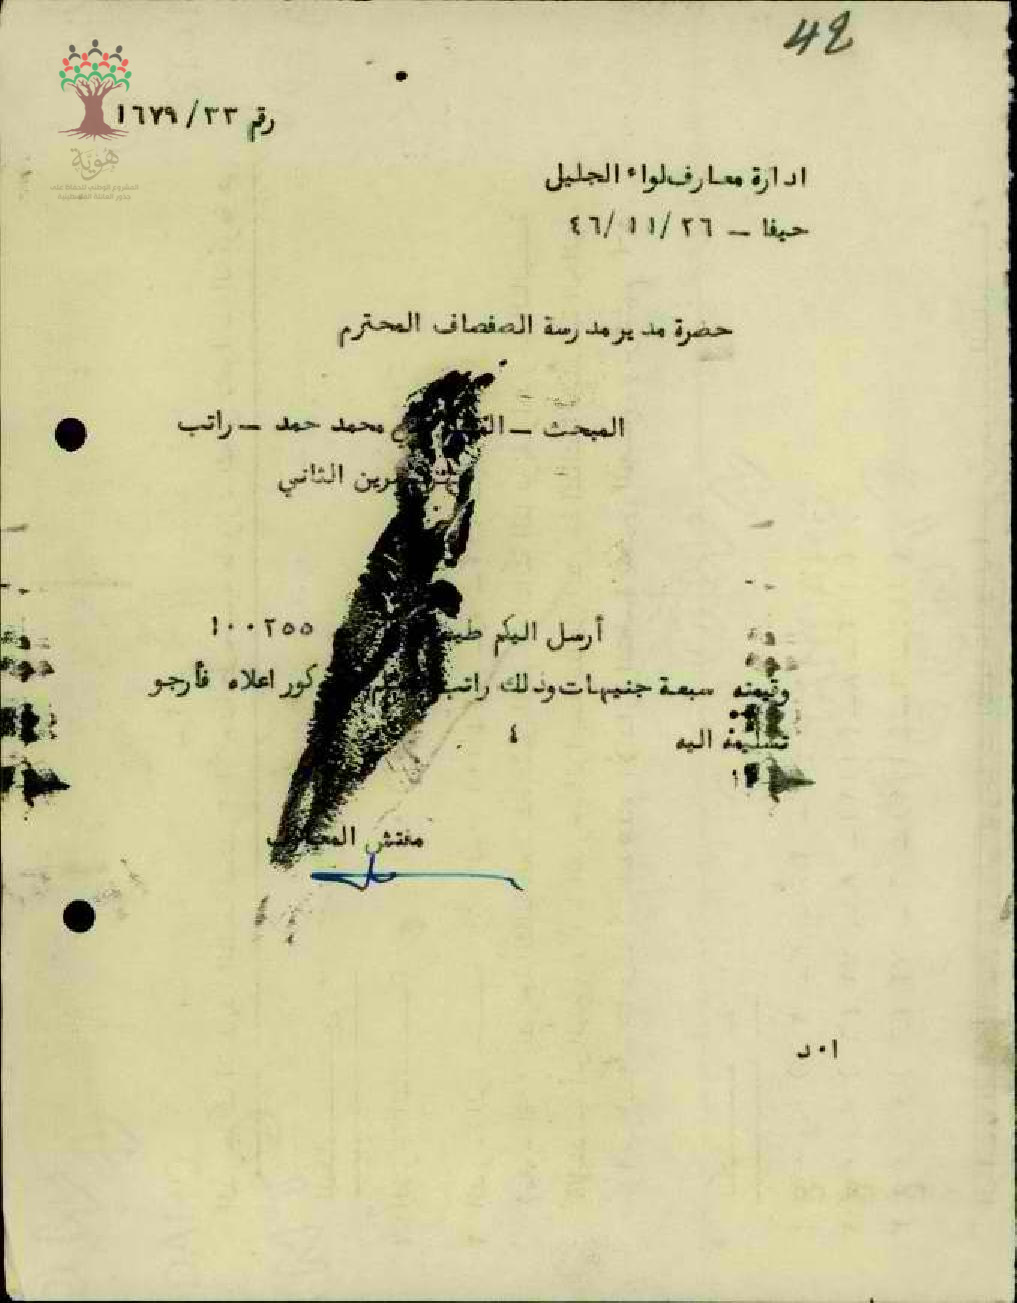 42
رقم ٣٣/ ١٦٧٩
هوية
المشروع الوطني للحفاظ على
جذور العائلة الفلسطينية
ادارة معارف لواء الجليل
حيفا – ٢٦/ ١١/ ٤٦
حضرة مدير مدرسة الصفصاف المحترم
المبحث – محمد حمد – راتب
الثاني
أرسل اليكم ١٠٠٢٥٥
وقيمته سبعة جنيهات وذلك راتب اعلاه فأرجو
تسليمه اليه ٤
مفتش
ا٠د